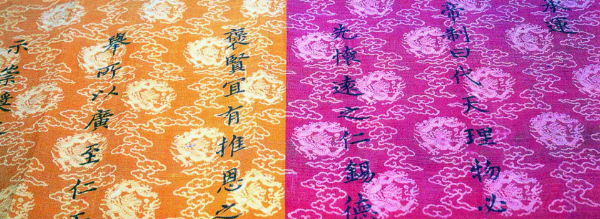 承運
帝制曰代天理物必
先懷遠之仁錫德
褒賢宜有推恩之
舉所以廣至仁
示崇獎